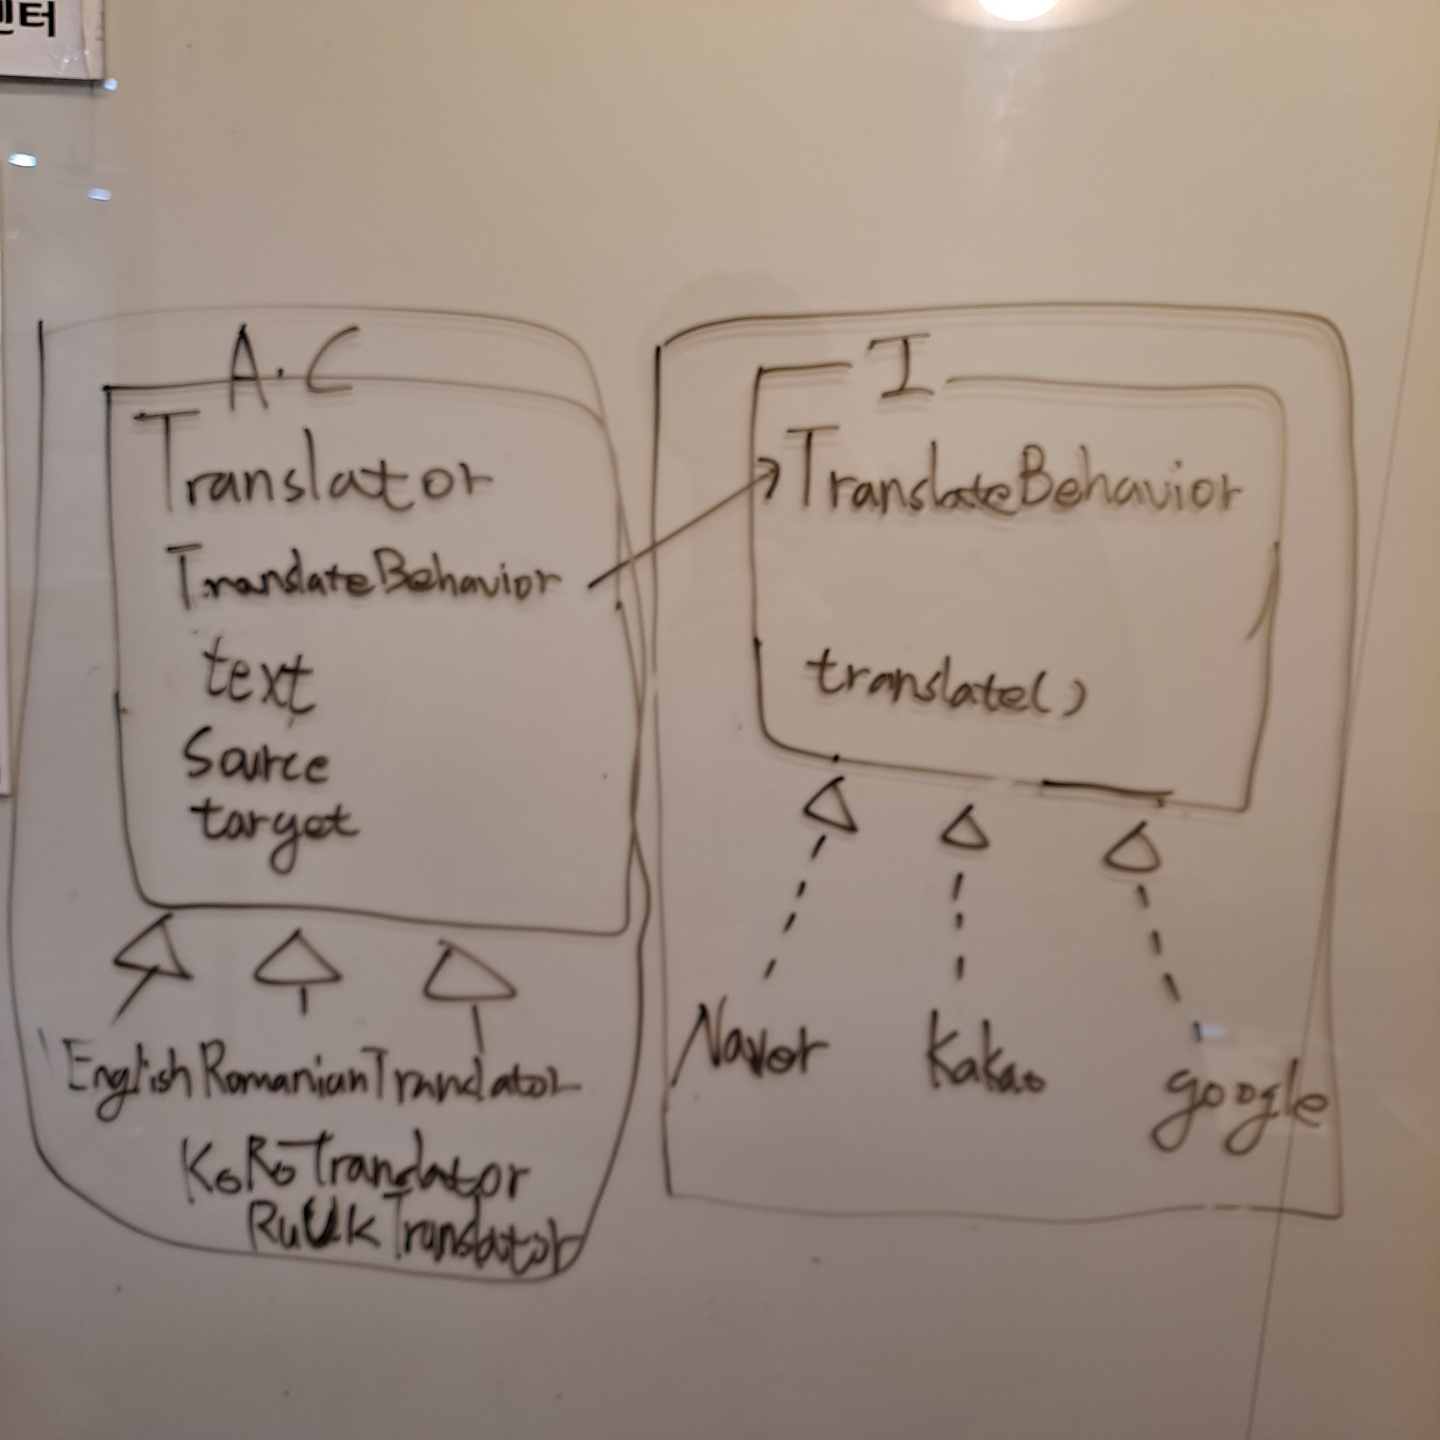 센터
A.C
Translator
TranslateBehavior
text
Source
target
EnglishRomanianTranslator
KoRoTranslator
RuUkTranslator
I
TranslateBehavior
translate()
Naver
Kakao
google